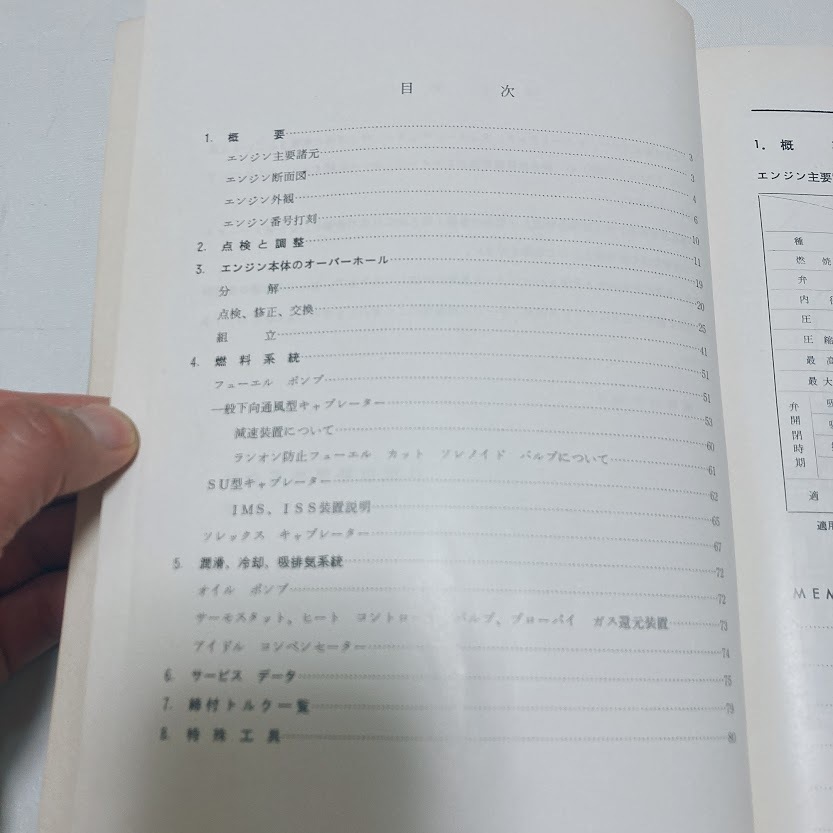 目 次
1. 概 要 3
エンジン主要諸元 3
エンジン断面図 4
エンジン外観 6
エンジン番号打刻 10
2. 点検と調整 11
3. エンジン本体のオーバーホール 19
分 解 20
点検、修正、交換 25
組 立 41
4. 燃料系統 51
フューエル ポンプ 51
一般下向通風型キャブレーター 53
減速装置について 60
ランオン防止フューエル カット ソレノイド バルブについて 61
SU型キャブレーター 62
IMS、ISS装置説明 65
ソレックス キャブレーター 67
5. 潤滑、冷却、吸排気系統 71
オイル ポンプ 72
サーモスタット、ヒート コントロール バルブ、ブローバイ ガス還元装置 73
アイドル コンペンセーター 74
6. サービス データ 75
7. 締付トルク一覧 79
8. 特殊工具 80
1. 概
エンジン主要
種
燃 焼
弁
内 径
圧
圧 縮
最 高
最 大
弁開閉時期
適
適用
MEM